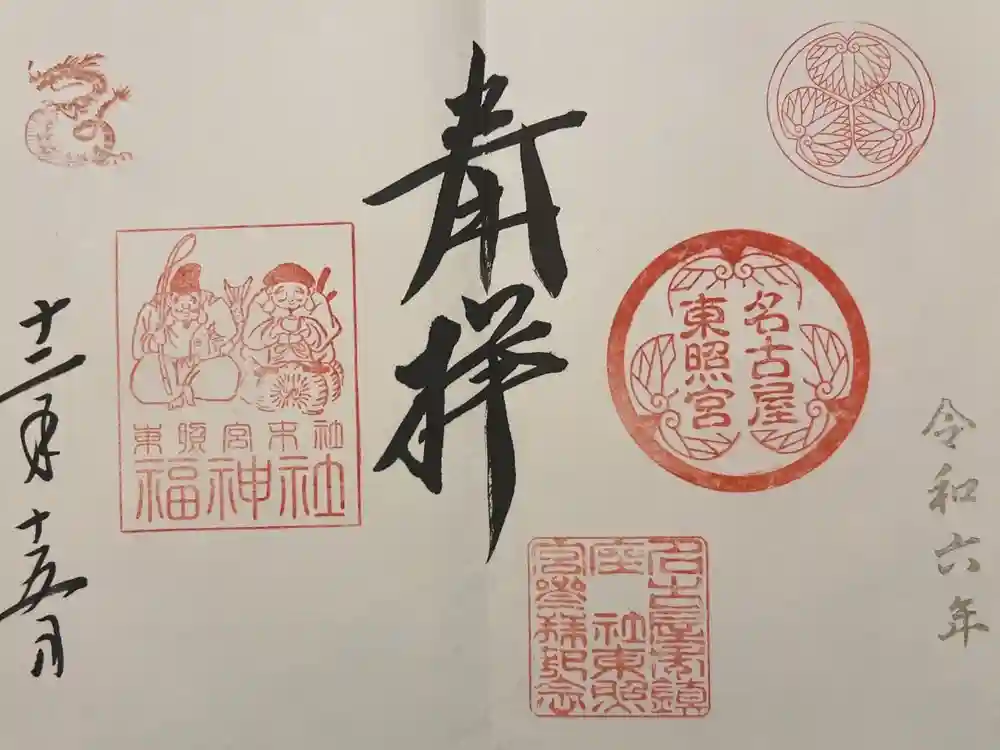 令和六年
名古屋
東照宮
名古屋鎮
座 社東照
宮參拜記念
奉拝
東照宮末社
福神社
十二月十五日